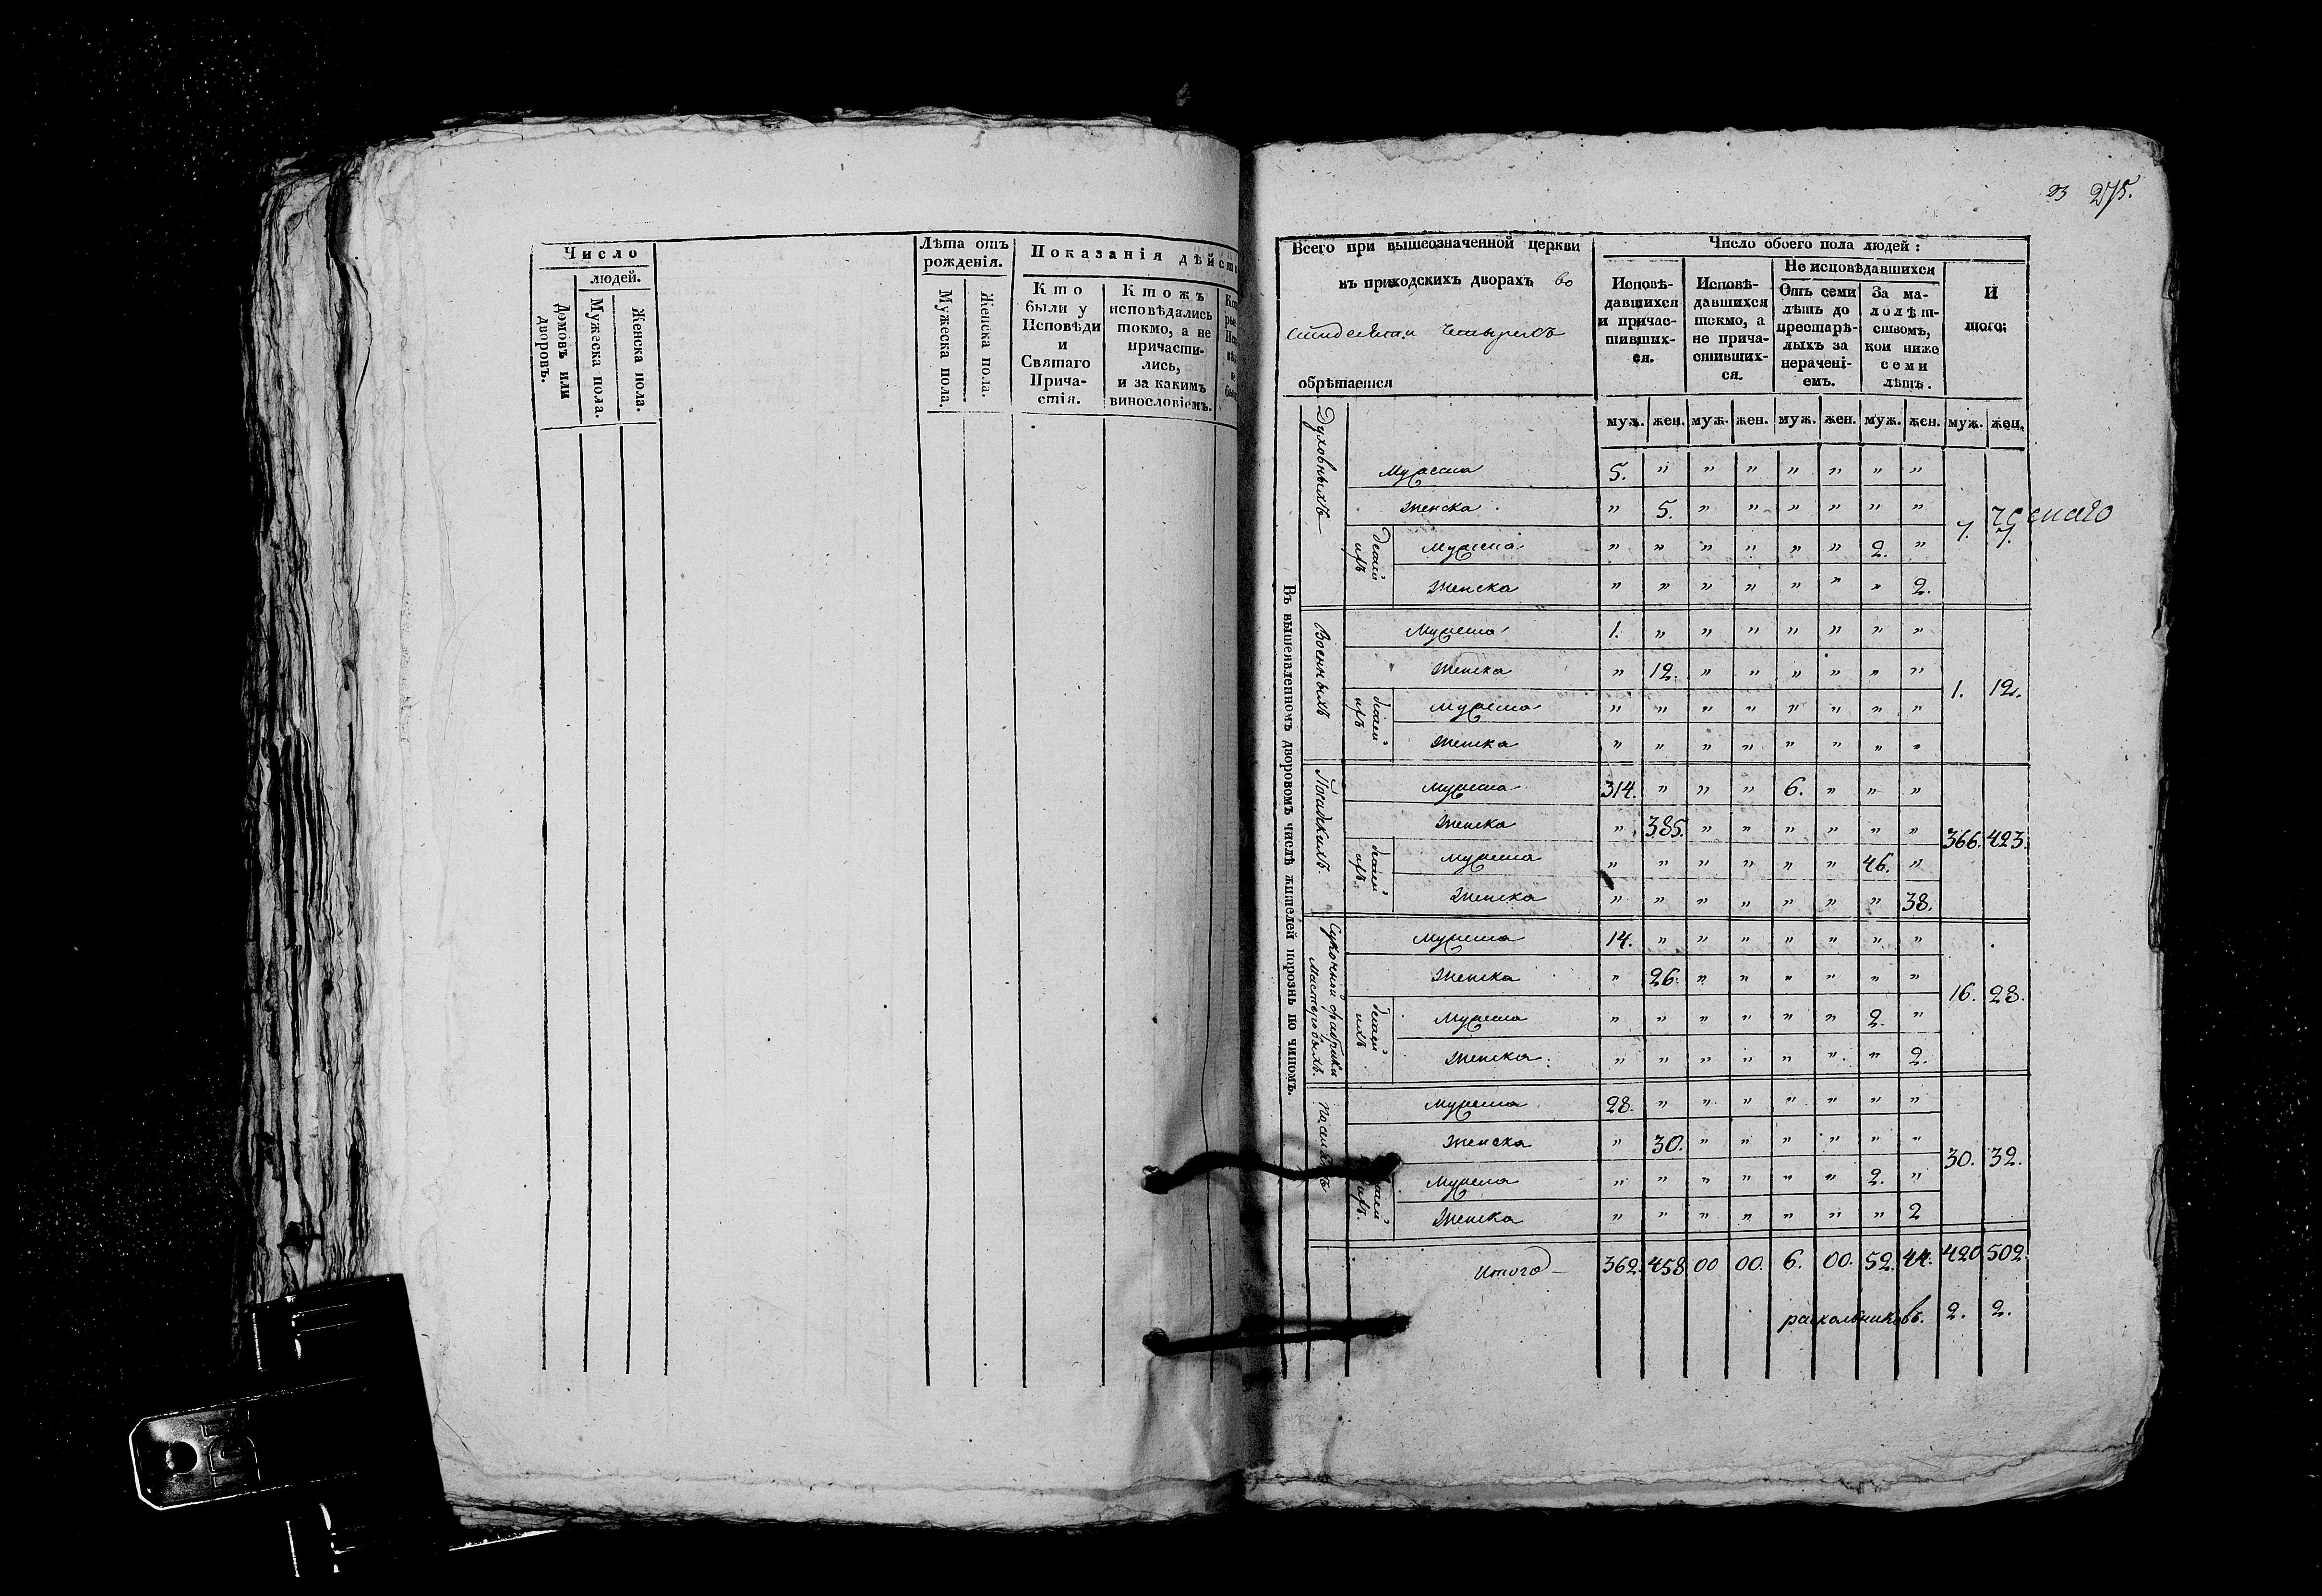 Число
людей.
Домовъ или дворовъ.
Мужеска пола.
Женска пола.
Лѣта отъ рожденія.
Мужеска пола.
Женска пола.
Показанія дѣйст
Кто были у Исповѣди и Святаго Прича-стія.
Ктожъ исповѣдались токмо, а не причасти-лись, и за какимъ винословіемъ.
23 275.
Всего при вышеозначенной церкви
въ приходскихъ дворахъ во
четырехъ
обрѣтается
Число обоего пола людей:
Исповѣ-давшихся и причас-тивших-ся.
Исповѣ-давшихся токмо, а не прича-стивших-ся.
Не исповѣдавшихся
Отъ семи лѣтъ до престарѣ-лыхъ за нерачені-емъ.
За ма-лолѣт-ствомъ, кои ниже семи лѣтъ.
И того:
муж. жен. муж. жен. муж. жен. муж. жен. муж. жен.
Въ вышеявленномъ дворовомъ числѣ жителей порознь по чиномъ.
Духовныхъ
Мужеска 5. " " " " " " "
Женска " 5. " " " " " "
7. 7.
детей ихъ
Мужеска " " " " " " 2. "
Женска " " " " " " " 2.
Военныхъ
Мужеска 1. " " " " " " "
Женска " 12. " " " " " "
1. 12.
детей ихъ
Мужеска " " " " " " " "
Женска " " " " " " " "
Посадскихъ.
Мужеска 314. " " " 6. " " "
Женска " 385. " " " " " "
366. 423.
детей ихъ.
Мужеска " " " " " " 46. "
Женска " " " " " " " 38.
Суконной фабрики Мастеровыхъ.
Мужеска 14. " " " " " " "
Женска " 26. " " " " " "
16. 28.
детей ихъ
Мужеска " " " " " " 2. "
Женска " " " " " " " 2.
Мужеска 28. " " " " " " "
Женска " 30. " " " " " "
30. 32.
детей ихъ.
Мужеска " " " " " " 2. "
Женска " " " " " " " 2
Итого 362. 458 00 00. 6. 00. 52. 44. 420 502
раскольниковъ. 2. 2.